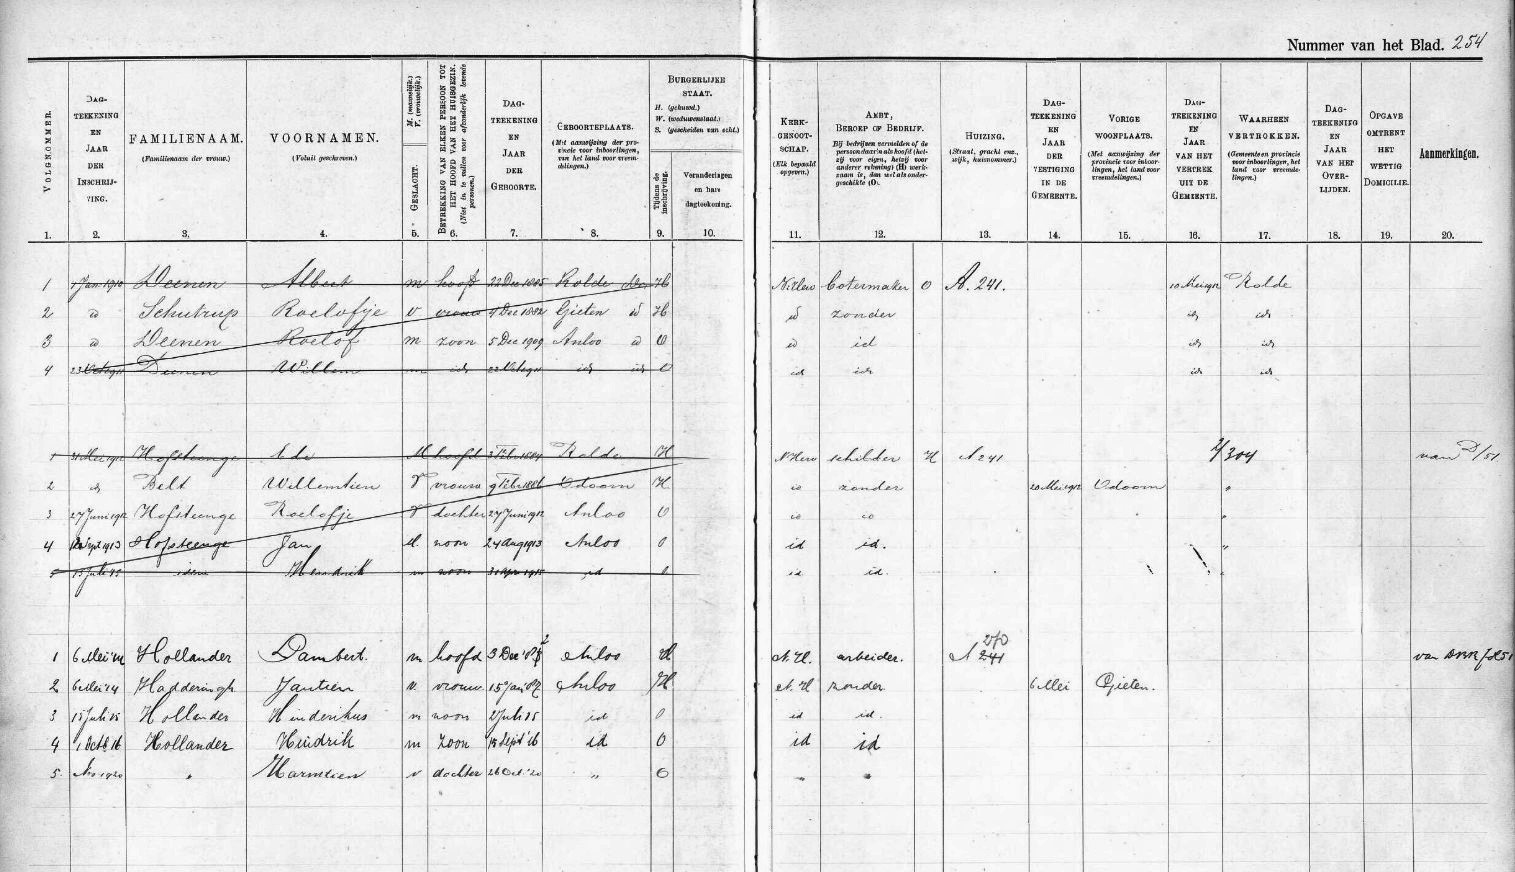 Nummer van het Blad. 254
VOLGNOMMER.
DAG-
TEEKENING
EN
JAAR
DER
INSCHRIJ-
VING.
FAMILIENAAM.
(Familienaam der vrouw.)
VOORNAMEN.
(Voluit geschreven.)
GESLACHT. M. (mannelijk.) V. (vrouwelijk.)
BETREKKING VAN ELKEN PERSOON TOT HET HOOFD VAN HET HUISGEZIN.
DAG-
TEEKENING
EN
JAAR
DER
GEBOORTE.
GEBOORTEPLAATS.
(Met aanwijzing der pro-
vincie voor inboorlingen,
van het land voor vreem-
delingen.)
BURGERLIJKE
STAAT.
H. (gehuwd.)
W. (weduwenstaat.)
S. (gescheiden van echt.)
Tijdens de inschrijving.
Veranderingen
en hare
dagteekening.
KERK-
GENOOT-
SCHAP.
(Elk bepaald
opgeven.)
AMBT,
BEROEP OF BEDRIJF.
Bij bedrijven vermelden of de
persoon daarin als hoofd (het-
zij voor eigen, hetzij voor
anderer rekening) (H) werk-
zaam is, dan wel als onder-
geschikte (O).
HUIZING.
(Straat, gracht enz.,
wijk, huisnommer.)
DAG-
TEEKENING
EN
JAAR
DER
VESTIGING
IN DE
GEMEENTE.
VORIGE
WOONPLAATS.
(Met aanwijzing der
provincie voor inboor-
lingen, het land voor
vreemdelingen.)
DAG-
TEEKENING
EN
JAAR
VAN HET
VERTREK
UIT DE
GEMEENTE.
WAARHEEN
VERTROKKEN.
(Gemeente en provincie
voor inboorlingen, het
land voor vreemde-
lingen.)
DAG-
TEEKENING
EN
JAAR
VAN HET
OVER-
LIJDEN.
OPGAVE
OMTRENT
HET
WETTIG
DOMICILIE.
Aanmerkingen.
1. 2. 3. 4. 5. 6. 7. 8. 9. 10. 11. 12. 13. 14. 15. 16. 17. 18. 19. 20.
1 1 Jan 1910 Deenen Albert m hoofd 22 Dec 1885 Rolde H N. Herv botermaker O A. 241. 10 Mei 1912 Rolde
2 id Schutrup Roelofje v vrouw 4 Dec 1882 Gieten id H id zonder id id
3 id Deenen Roelof m zoon 5 Dec 1909 Anloo id O id id id id
4 Deenen Willem m id id id O id id id id
1 Hofsteenge Ede M hoofd 3 Febr 1884 Rolde H N Herv schilder H A 241 304 van D/51
2 id Belt Willemtien V vrouw 9 Febr 1886 Odoorn H id zonder 20 Mei 1912 Odoorn "
3 27 Juni 1912 Hofsteenge Roelofje V dochter 27 Juni 1912 Anloo O id id "
4 Sept 1913 Hofsteenge Jan M. zoon 24 Aug 1913 Anloo O id id. "
5 15 Juli 15 idem Hendrik m zoon id O id id.
1 6 Mei '14 Hollander Lambert. m hoofd 3 Dec Anloo H N. H. arbeider. A 241 270
2 6 Mei '14 Hadderingh Jantien v. vrouw 15 Jan Anloo H N. H zonder 6 Mei Gieten.
3 15 Juli 15 Hollander Hinderikus m zoon 2 Juli 15 id O id id.
4 1 Oct 16 Hollander Hindrik m zoon 15 Sept '16 id O id id
5. Nov 1920 " Harmtien v dochter 26 Oct. '20 " O " "